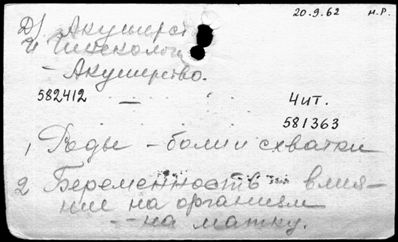 20.9.62 м.р.
Д) Акушерст
и Гинеколог
- Акушерство.
582412 — 4 чит.
581363
1, Роды - боли и схватки
2 Беременность - влия-
ние на организм
-- на матку.